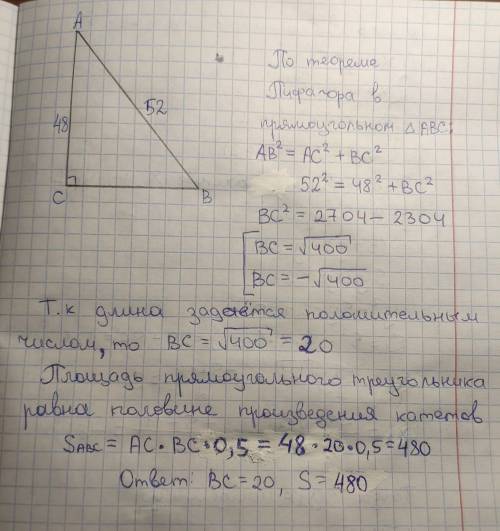 A
48
52
C
B
По теореме
Пифагора в
прямоугольном △ABC:
AB² = AC² + BC²
52² = 48² + BC²
BC² = 2704 - 2304
[ BC = √400
BC = -√400
Т.к длина задаётся положительным
числом, то BC = √400 = 20
Площадь прямоугольного треугольника
равна половине произведения катетов
S_ABC = AC · BC · 0,5 = 48 · 20 · 0,5 = 480
Ответ: BC = 20, S = 480